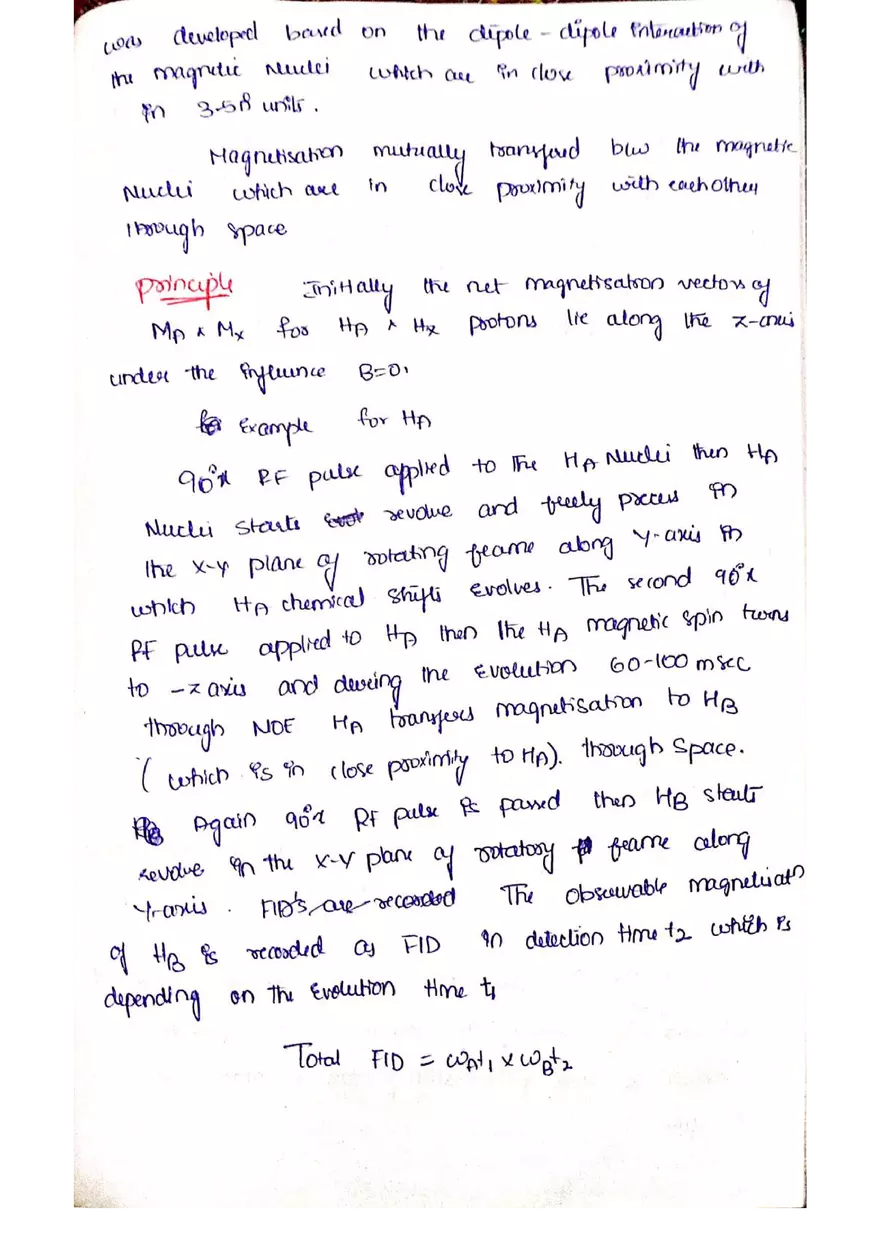 was developed based on the dipole - dipole interaction of
the magnetic Nuclei which are in close proximity with
in 3-5Å units.
Magnetisation mutually transfered b/w the magnetic
Nuclei which are in close proximity with each other
through space
Principle Initially the net magnetisation vectors of
MA & MX for HA & HX protons lie along the z-axis
under the influence B=0.
Example for HA
90°x RF pulse applied to the HA Nuclei then HA
Nuclei starts revolve and freely precess in
the x-y plane of rotating frame along Y-axis in
which HA chemical shifts evolves. The second 90°x
RF pulse applied to HA then the HA magnetic spin turns
to -z axis and during the Evolution 60-100 msec
through NOE HA transfers magnetisation to HB
( which is in close proximity to HA). through space.
Again 90°x RF pulse is passed then HB starts
revolve in the X-Y plane of rotatory frame along
Y-axis. FID's are recorded The observable magnetisatn
of HB is recorded as FID in detection time t2 which is
depending on the Evolution time t1
Total FID = ωAt1 x ωBt2